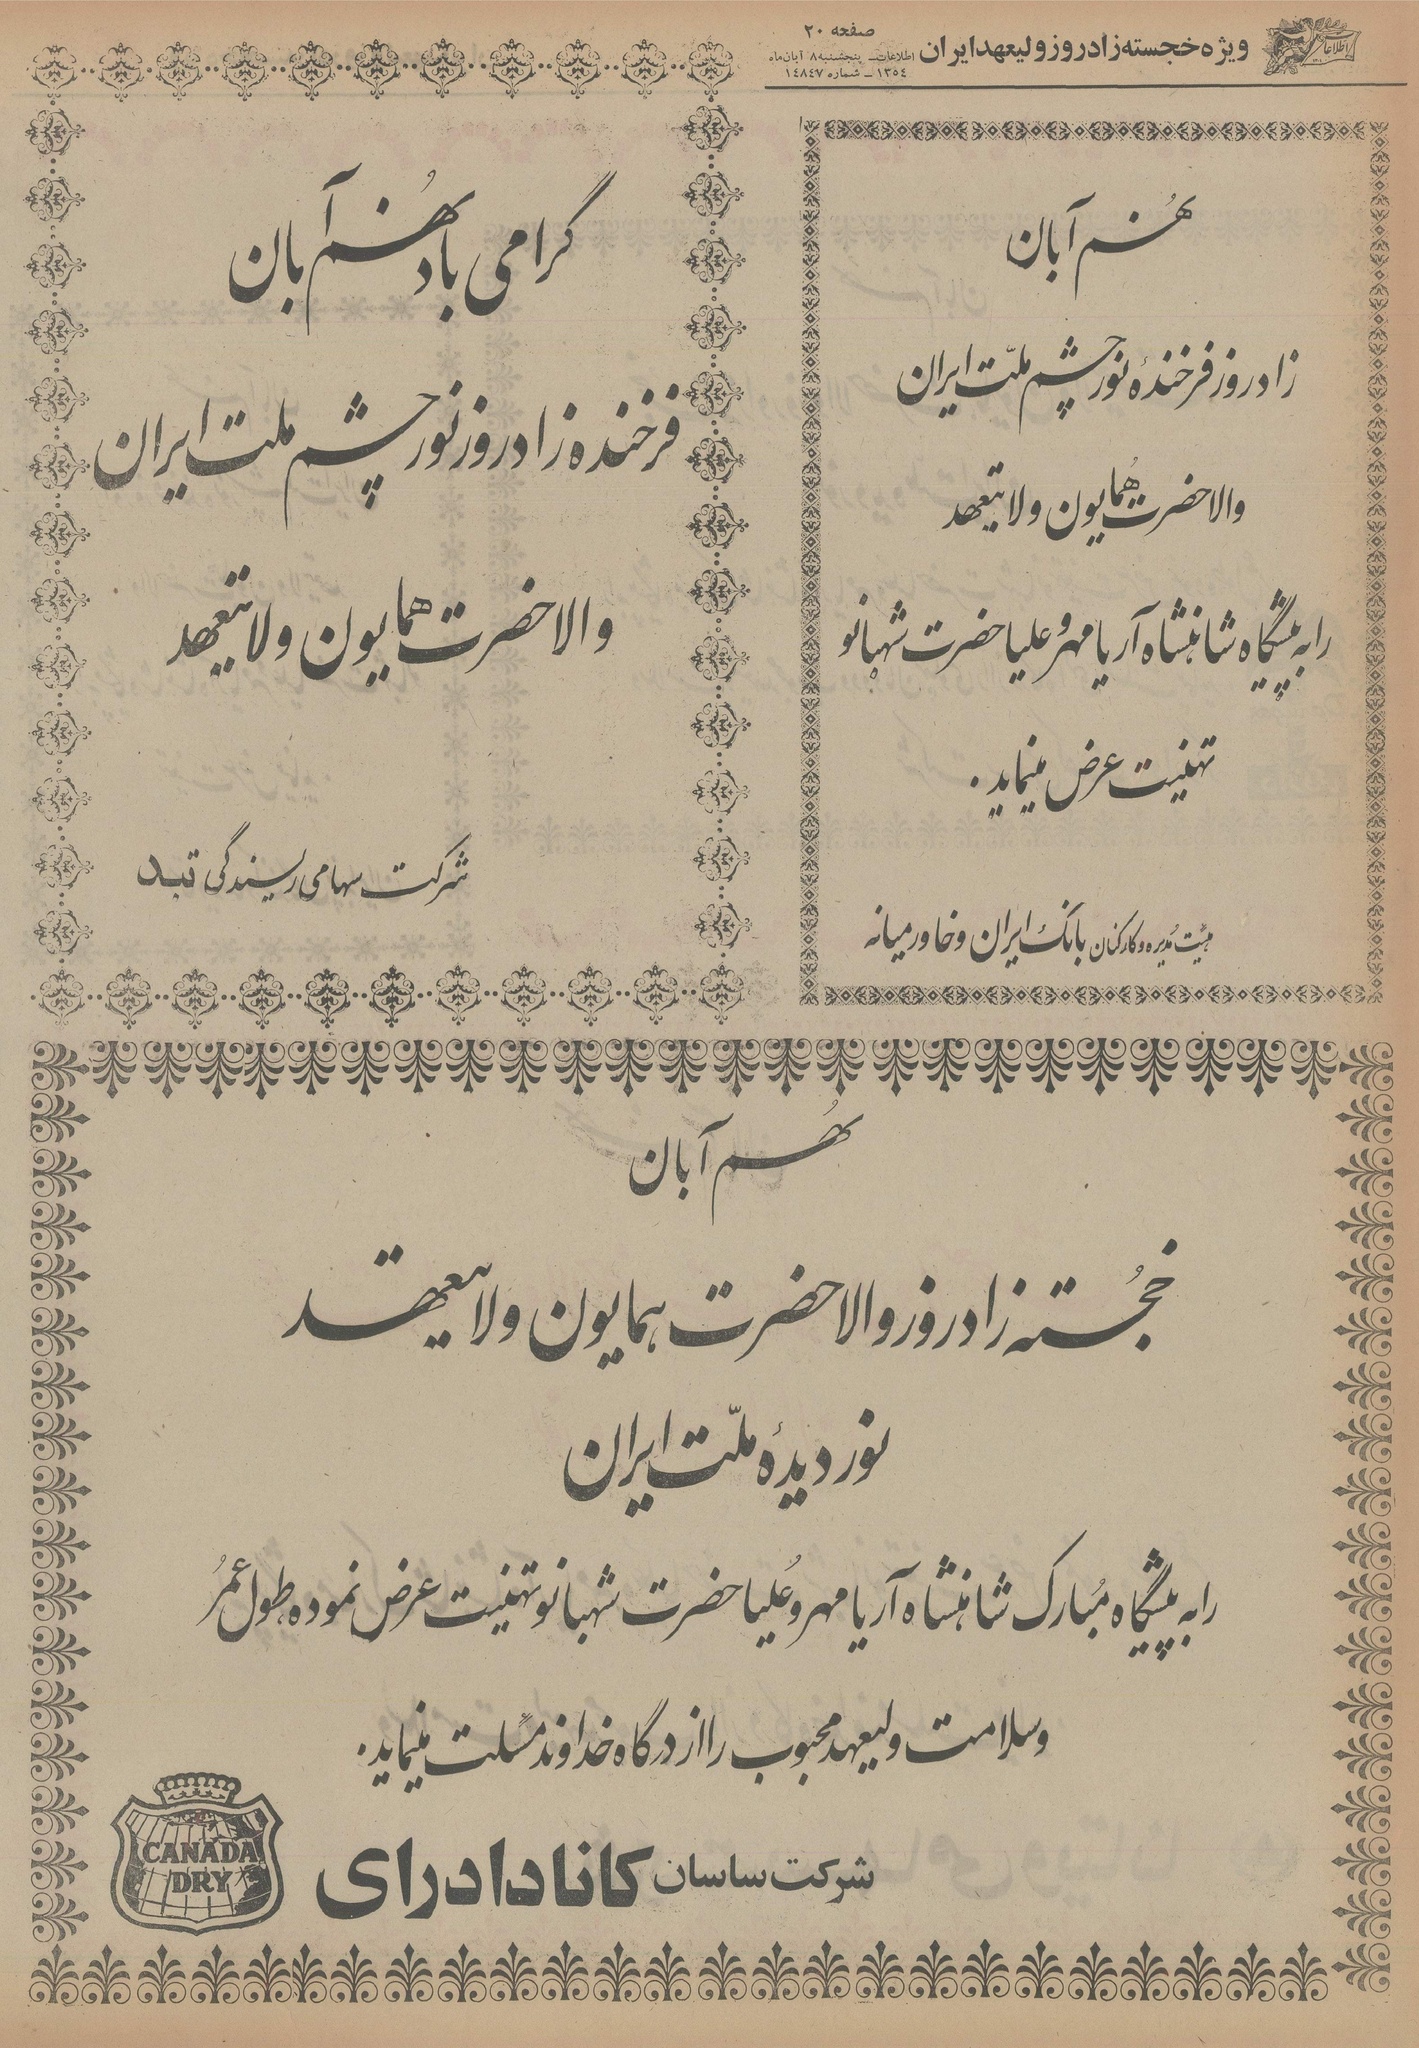 ویژه خجسته زادروز ولیعهد ایران
صفحه ۲۰
اطلاعات ـ پنجشنبه ۸ آبان ماه
۱۳۵۴ ـ شماره ۱۴۸۴۷
نهم آبان
زادروز فرخندهٔ نور چشم ملّت ایران
والاحضرت همایون ولایتعهد
را به پیشگاه شاهنشاه آریامهر و علیاحضرت شهبانو
تهنیت عرض مینماید.
هیئت مدیره و کارکنان بانک ایران و خاورمیانه
گرامی باد نهم آبان
فرخنده زادروز نور چشم ملت ایران
والاحضرت همایون ولایتعهد
شرکت سهامی ریسندگی تبد
نهم آبان
خجسته زادروز والاحضرت همایون ولایتعهد
نور دیدهٔ ملّت ایران
را به پیشگاه مبارک شاهنشاه آریامهر و علیاحضرت شهبانو تهنیت عرض نموده طول عمر
و سلامت ولیعهد محبوب را از درگاه خداوند مسئلت مینماید.
شرکت ساسان کانادادرای
CANADA
DRY